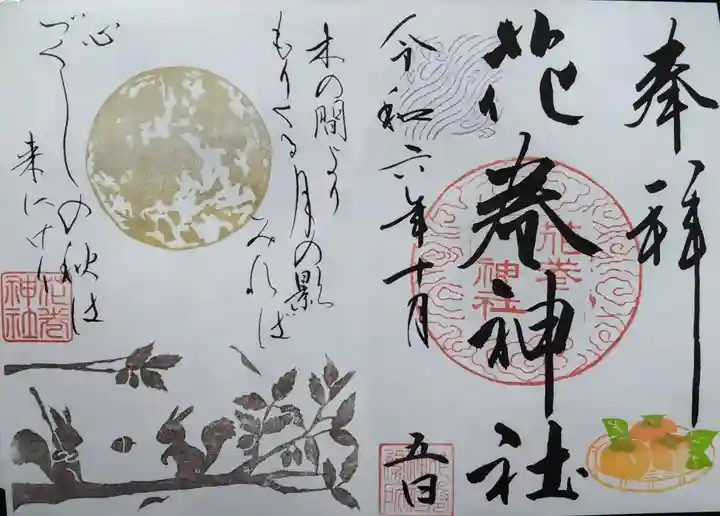 奉拝
花巻神社
令和六年十月
五日
花巻
神社
木の間より
もりくる月の影
みれば
心
づくしの秋は
来にけり
花巻
神社